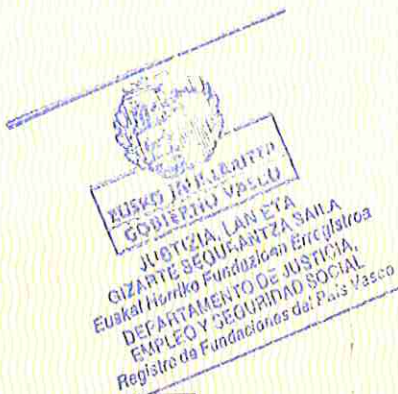 EUSKO JAURLARITZA
GOBIERNO VASCO
JUSTIZIA, LAN ETA
GIZARTE SEGURANTZA SAILA
Euskal Herriko Fundazioen Erregistroa
DEPARTAMENTO DE JUSTICIA,
EMPLEO Y SEGURIDAD SOCIAL
Registro de Fundaciones del País Vasco